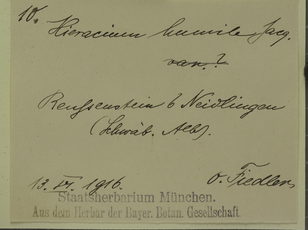 10.
Hieracium humile Jacq.
var.?
Reußenstein b Neidlingen
(Schwäb. Alb).
13. VI. 1916. O. Fiedler
Staatsherbarium München.
Aus dem Herbar der Bayer. Botan. Gesellschaft.